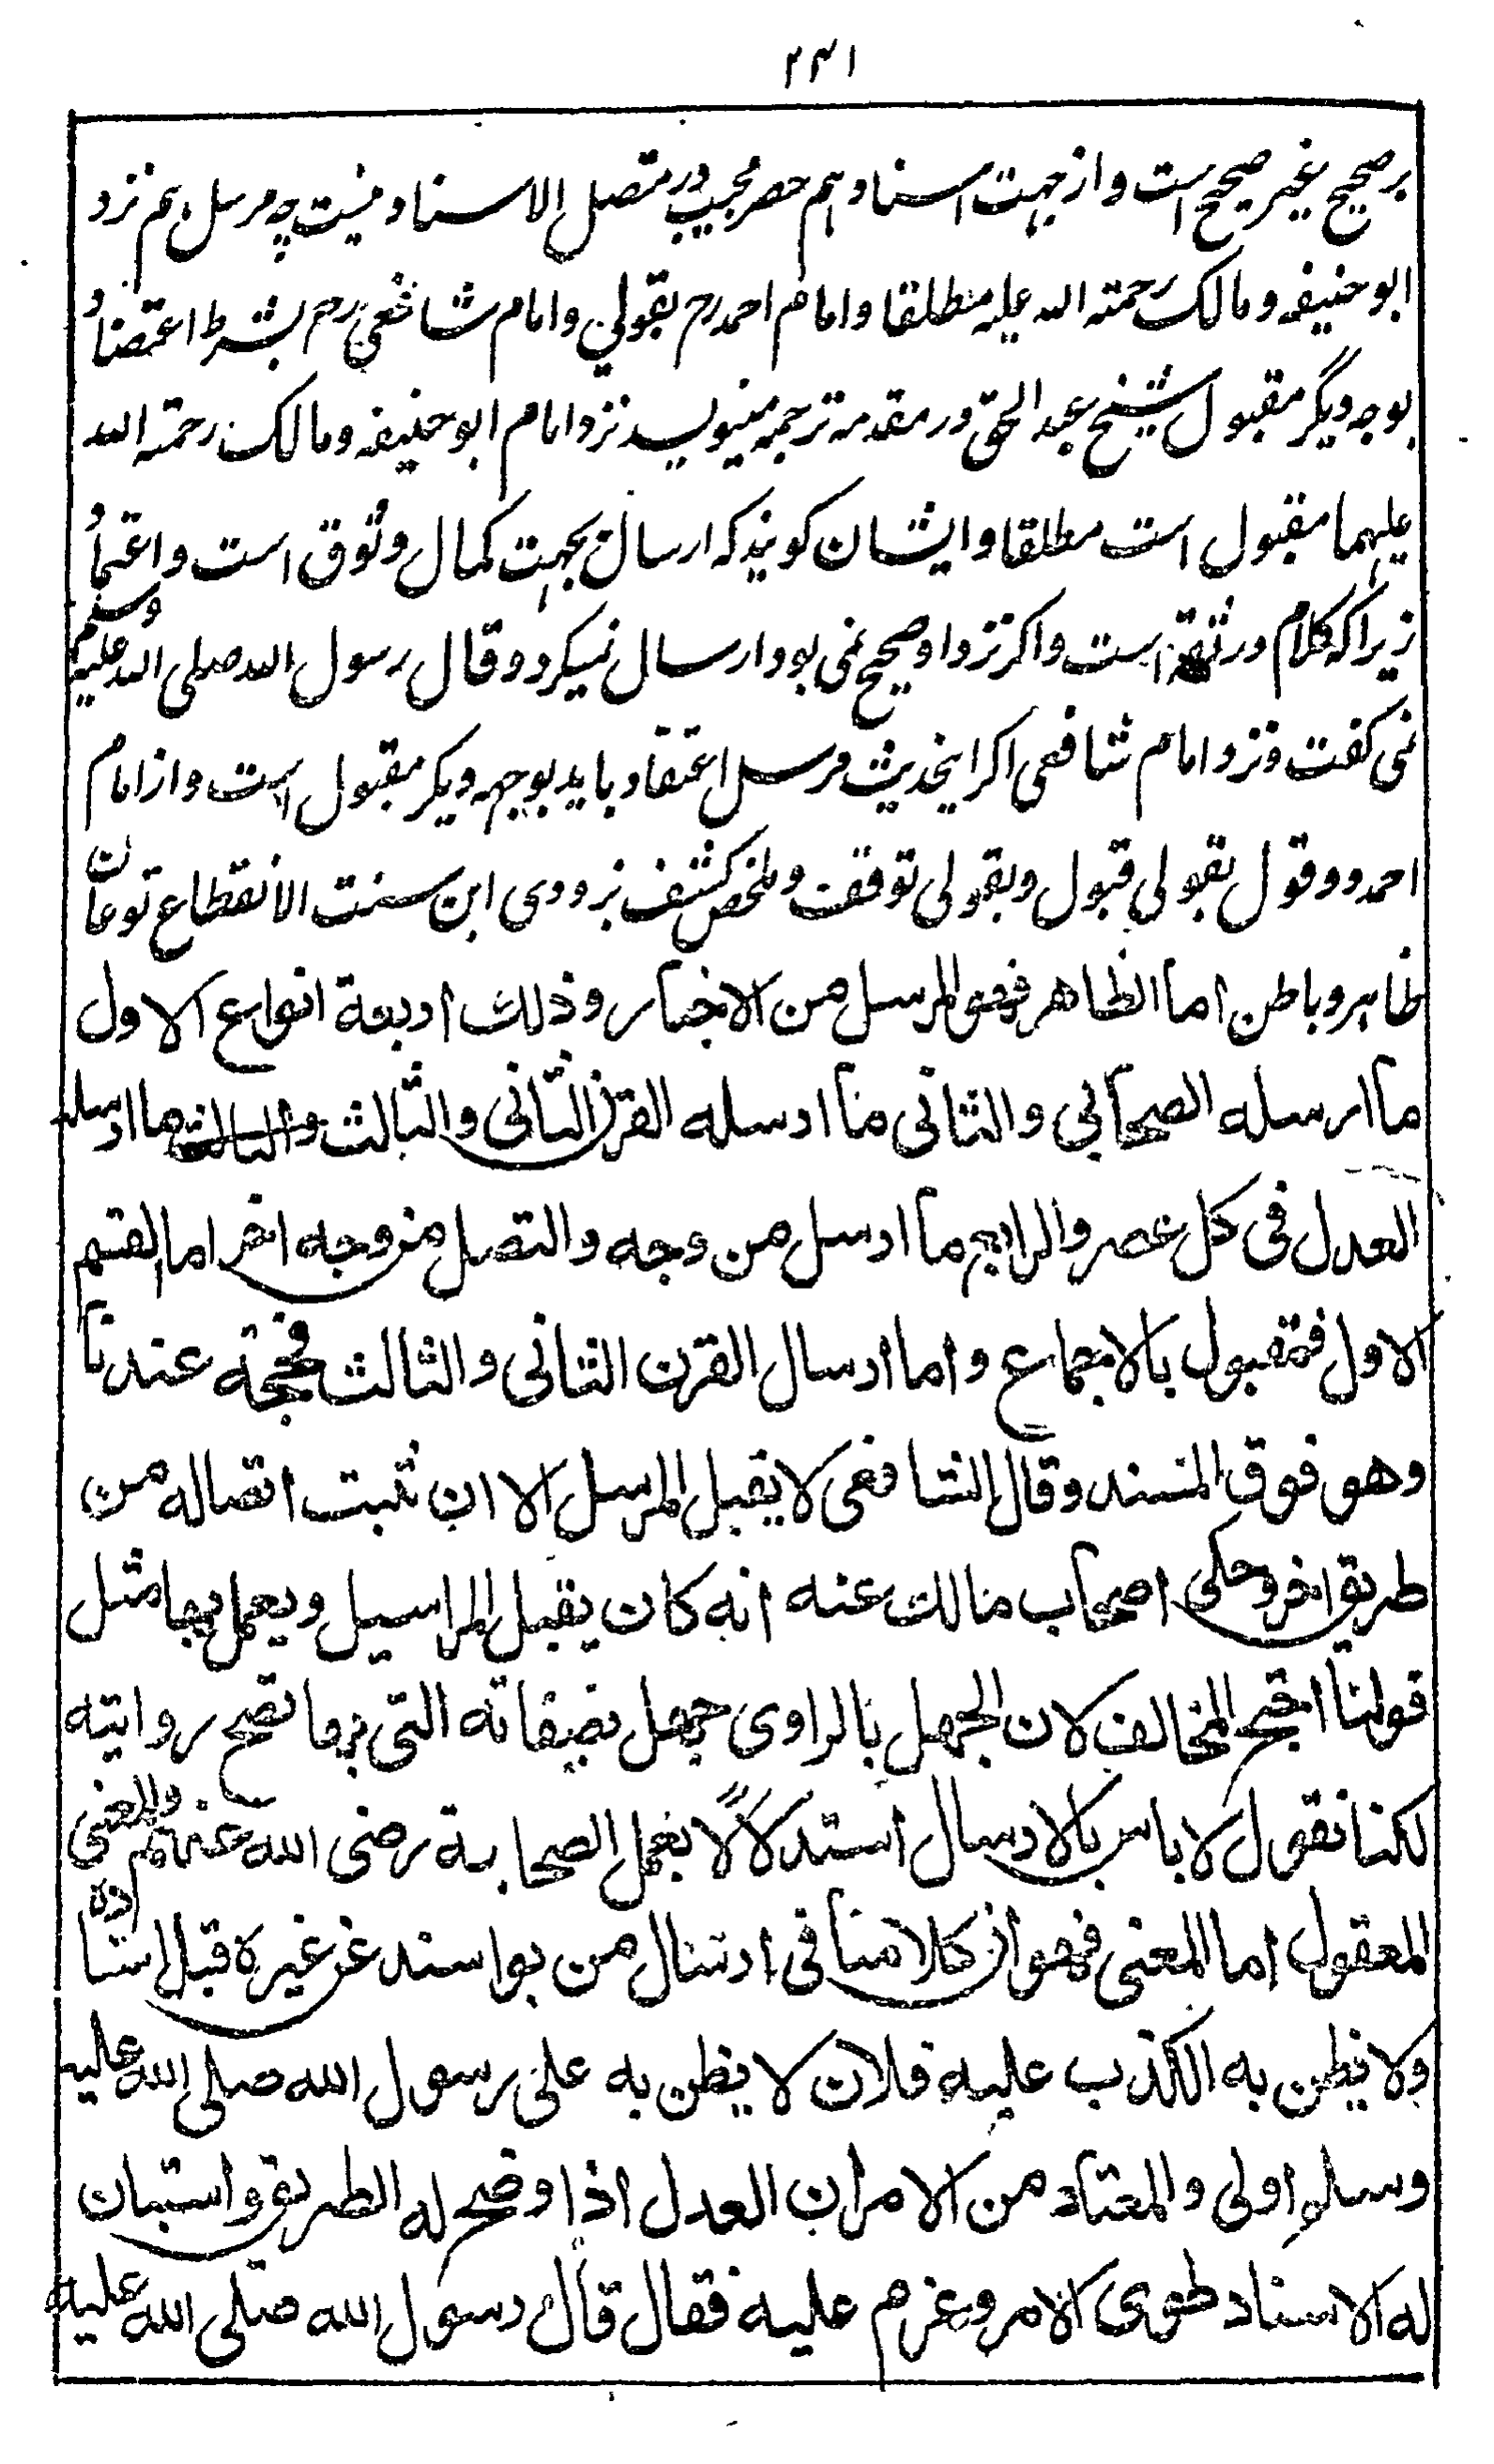 ۲۴۱
بر صحیح غیر صحیح است و از جهت اسناد هم حصر مجیب در متصل الاسناد نیست چه مرسل هم نزد
ابو حنیفه و مالک رحمته الله علیه مطلقا و امام احمد رح بقولی و امام شافعی رح بشرط اعتضاد
بوجه دیگر مقبول شیخ عبد الحق در مقدمه ترجمه مینویسد نزد امام ابو حنیفه و مالک رحمته الله
علیهما مقبول است مطلقا و ایشان کویند که ارسال بجهت کمال وثوق است و اعتماد
زیرا که کلام در ثقه است و اکر نزد او صحیح نمی بود ارسال نمیکرد و قال رسول الله صلی الله علیه وسلم
نمی کفت و نزد امام شافعی اکر اینحدیث مرسل اعتضاد یابد بوجهه دیکر مقبول است و از امام
احمد دو قول بقولی قبول و بقولی توقف و ملخص کشف بزدوی این ست الانقطاع نوعان
ظاهر و باطن اما الظاهر فهو المرسل من الاخبار و ذلک اربعة انواع الاول
ما ارسله الصحابی والثانی ما ارسله القرن الثانی والثالث والثالث ما ارسله
العدل فی کل عصر والرابع ما ارسل من وجه والتصل من وجه اخر اما القسم
الاول فمقبول بالاجماع و اما ارسال القرن الثانی والثالث فحجة عندنا
وهو فوق المسند وقال الشافعی لا یقبل المرسل الا ان ثبت اتصاله من
طریق اخر وحکی اصحاب مالک عنه انه کان یقبل المراسیل ویعمل بها مثل
قولنا احتج المخالف لان الجهل بالراوی جهل بصفاته التی بها تصح روایته
لکنا نقول لا باس بالارسال استدلالًا بعمل الصحابة رضی الله عنهم والمعنی
المعقول اما المعنی فهو ان کلامنا فی ارسال من لو اسند عن غیره قبل اسناده
ولا یظن به الکذب علیه فلان لا یظن به علی رسول الله صلی الله علیه
وسلم اولی والمعتاد من الامر ان العدل اذا وضح له الطریق واستبان
له الاسناد طوی الامر وعزم علیه فقال قال رسول الله صلی الله علیه